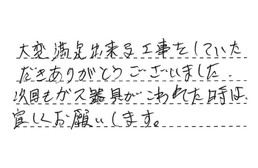 大変満足出来る工事をしていた
だきありがとうございました。
次回もガス器具がこわれた時は、
宜しくお願いします。